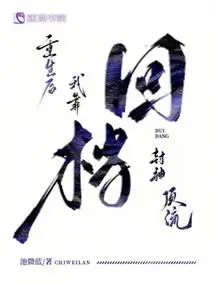 潇湘书院
重生后
我靠
回档
HUI
DANG
封神
顶流
池微蓝/著 CHIWEILAN